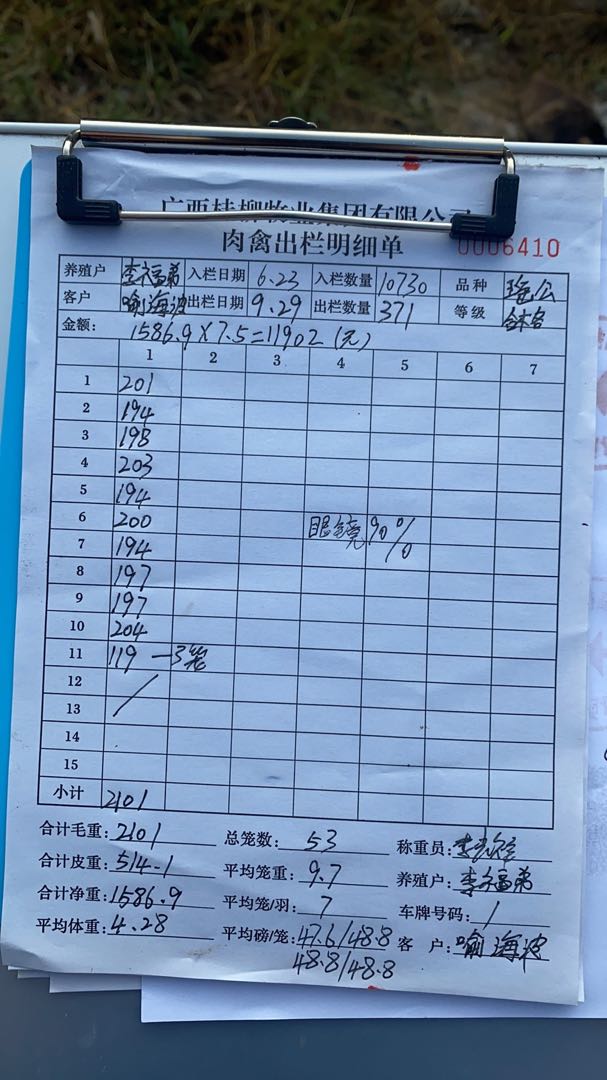 广西桂柳牧业集团有限公司
肉禽出栏明细单 0006410
养殖户 李福弟 入栏日期 6.23 入栏数量 10730 品种 瑶公
客户 喻海波 出栏日期 9.29 出栏数量 371 等级
金额: 1586.9×7.5=11902(元)
1 2 3 4 5 6 7
1 201
2 194
3 198
4 203
5 194
6 200 眼镜90%
7 194
8 197
9 197
10 204
11 119 —3笼
12
13
14
15
小计 2101
合计毛重: 2101 总笼数: 53 称重员:
合计皮重: 514.1 平均笼重: 9.7 养殖户: 李福弟
合计净重: 1586.9 平均笼/羽: 7 车牌号码: /
平均体重: 4.28 平均磅/笼: 47.6/48.8 客 户: 喻海波
48.8/48.8